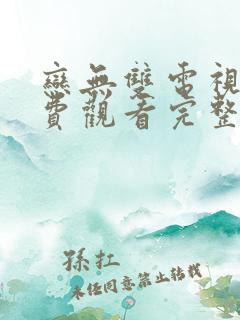 戀無雙電視
費觀看完整
孫扛
未经同意禁止转载